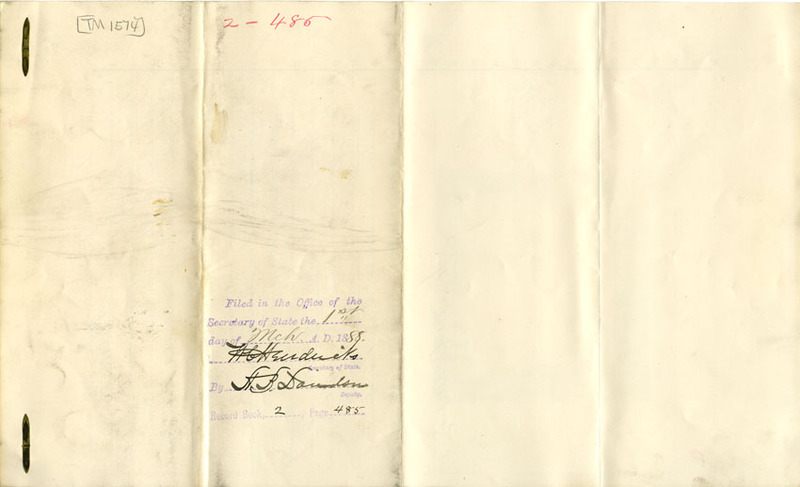 TM 1574
2 - 485
Filed in the Office of the
Secretary of State the 1st
day of Mch. A. D. 1888.
W C Hendricks
Secretary of State.
By A. B.
Deputy.
Record Book, 2, Page 485